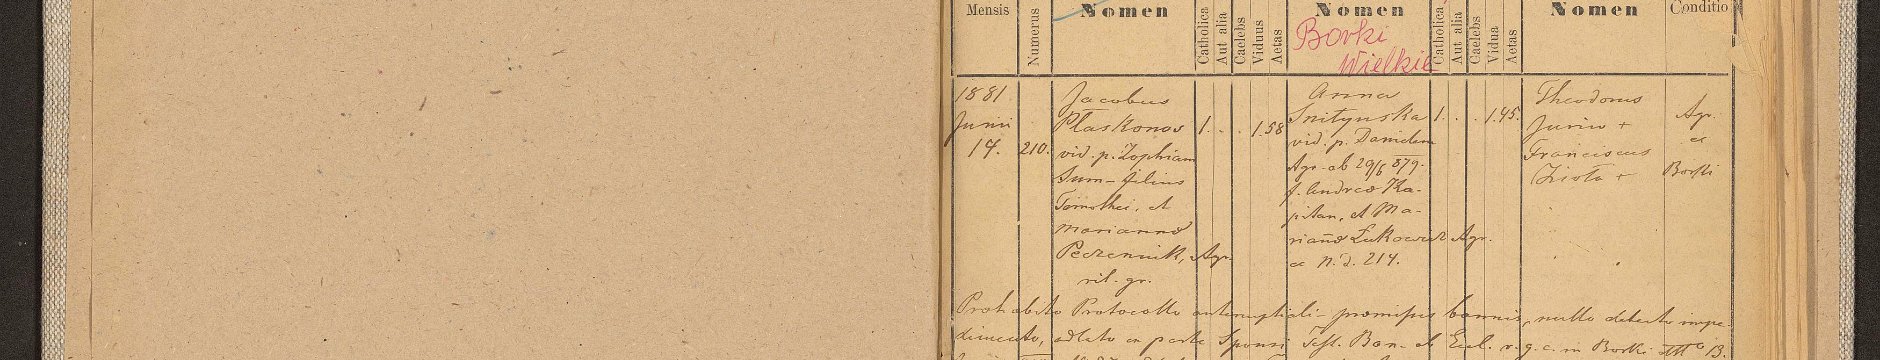 Mensis Numerus Nomen Catholica Aut alia Caelebs Viduus Aetas Nomen Catholica Aut alia Caelebs Vidua Aetas Nomen Conditio
Borki
Wielkie
1881
Junii
14.
210.
Jacobus
Płaskonos
vid. p. Zophiam
Sum- filius
Timothei, et
Mariannæ
Peczennik, Agr.
rit. gr.
1. . . 1. 58
Anna
Snitynska
vid. p. Danielem
Agr. ab 29/6 879.
f. Andreæ Ka-
pitan, et Ma-
riannæ Łukowicz Agr.
ex N. d. 214.
1. . . 1. 45.
Theodorus
Juriw +
Franciscus
Zioła +
Agr.
ex
Borki
Prohabito Protocollo antenuptiali- promissis bannis, nullo detecto impe-
dimento, allato ex parte Sponsi Test. Ban. ab Eccl. r. g. c. in Borki dtto 13.